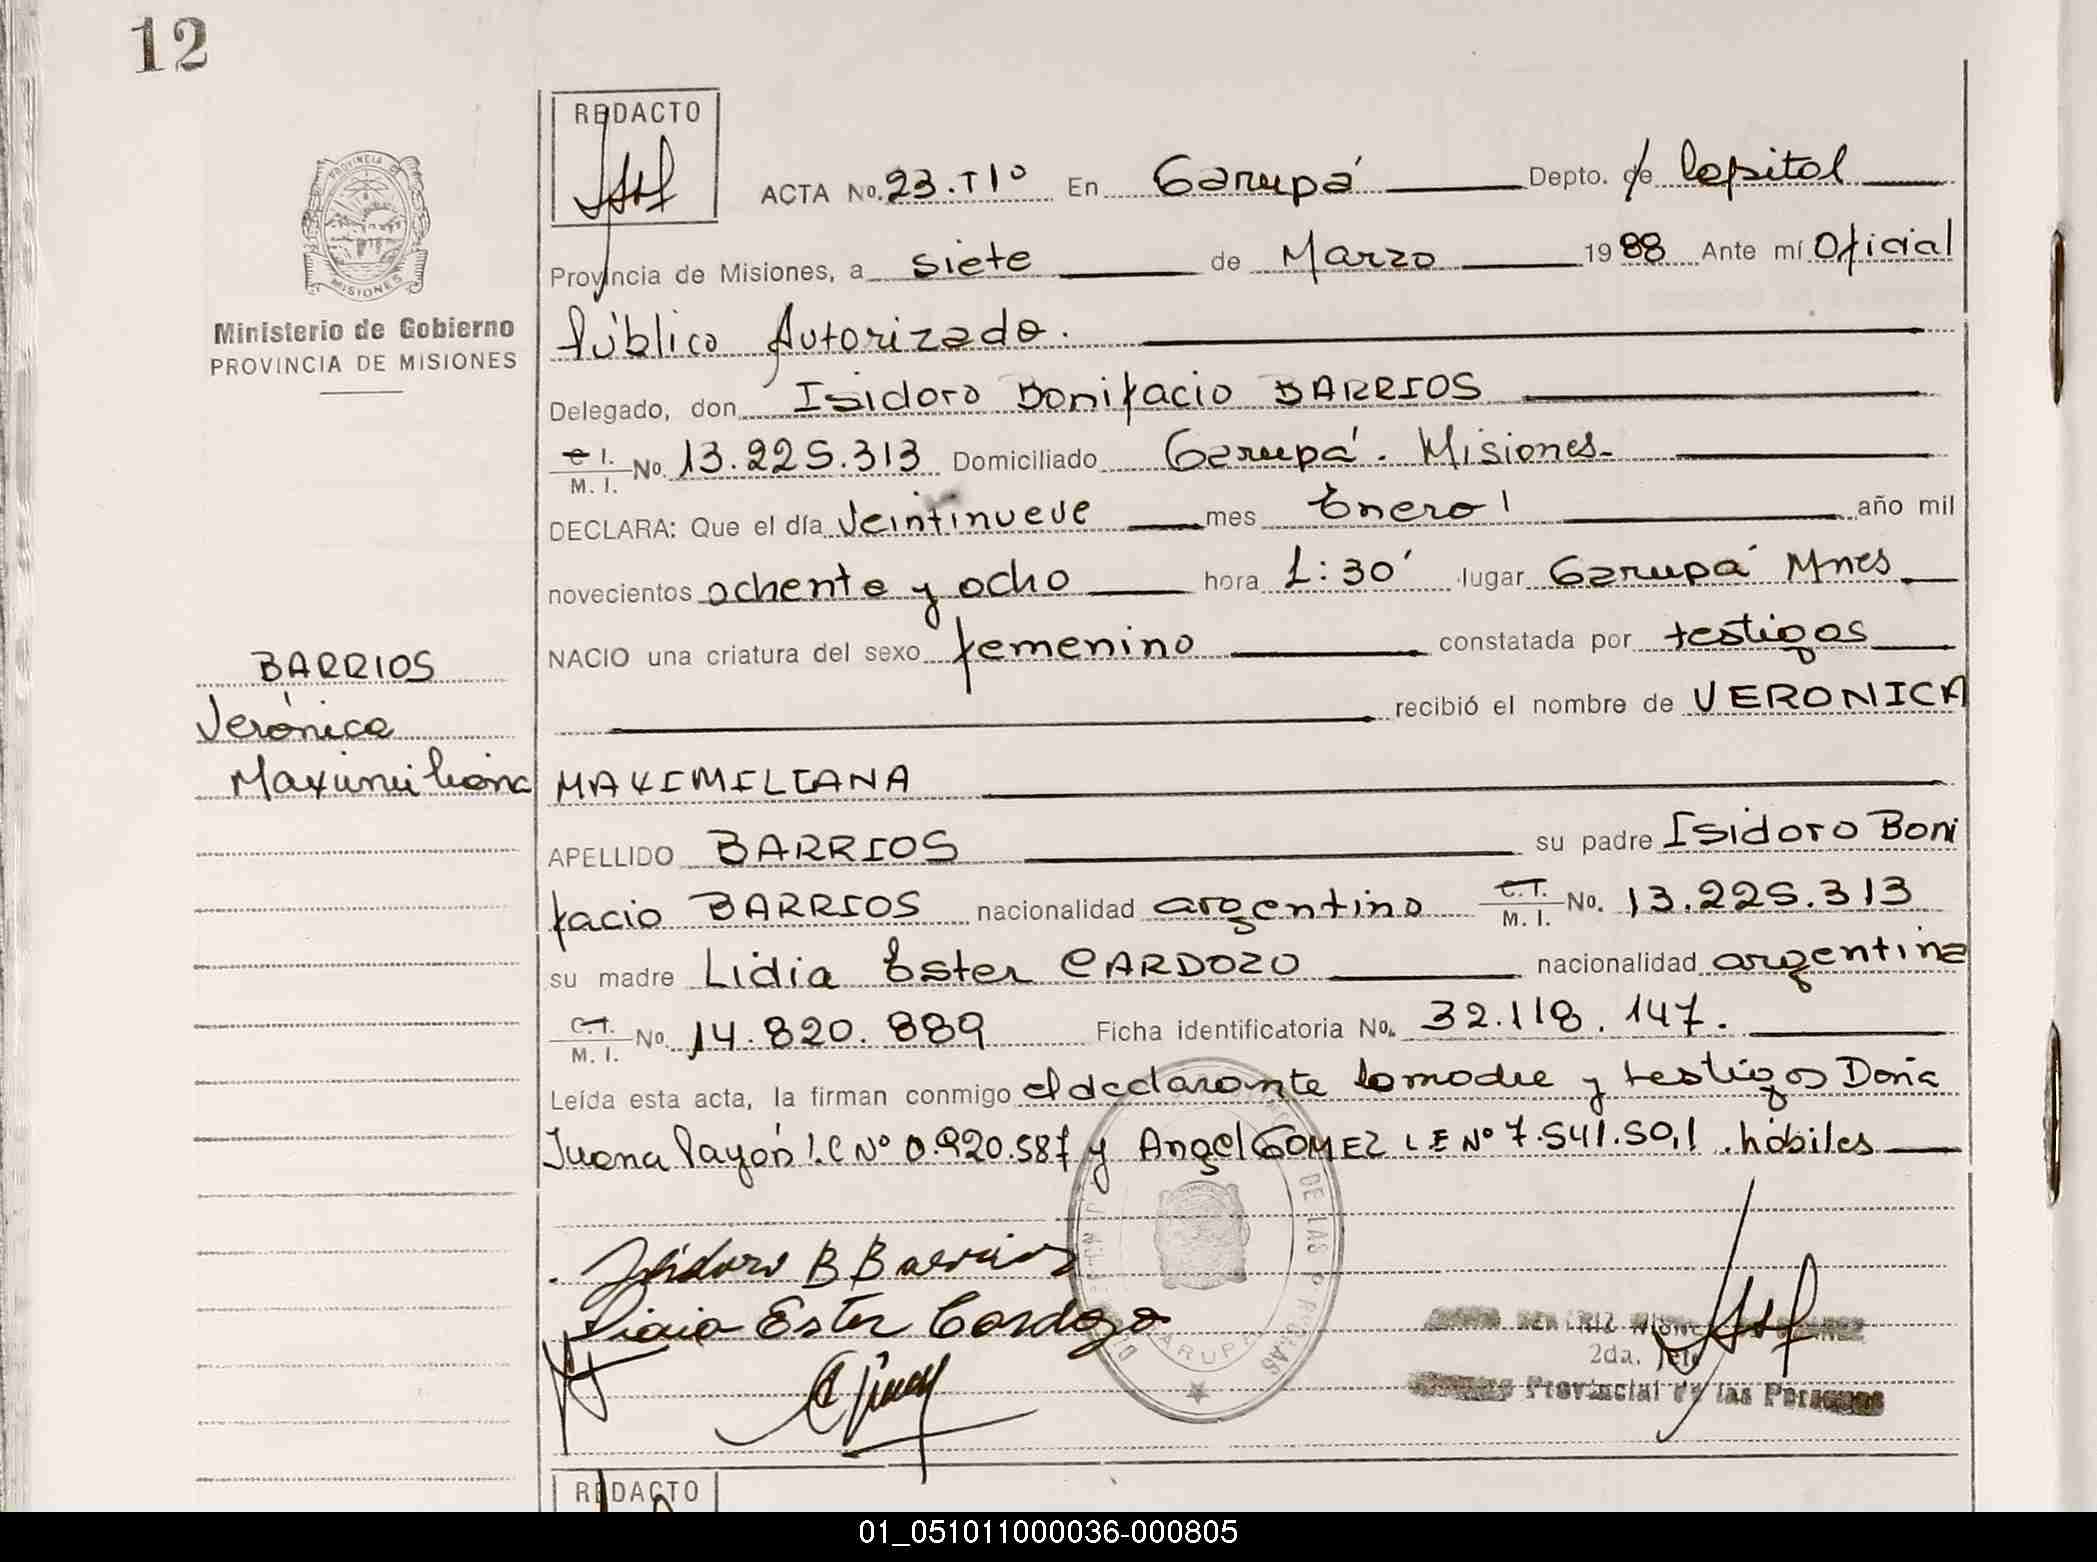 12
REDACTO
PROVINCIA DE
MISIONES
Ministerio de Gobierno
PROVINCIA DE MISIONES
ACTA No. 23.TIº En Garupá Depto. de Capital
Provincia de Misiones, a siete de Marzo 1988 Ante mí Oficial
Público Autorizado.
Delegado, don Isidoro Bonifacio BARRIOS
C.I. M. I. No. 13.225.313 Domiciliado Garupá. Misiones-
DECLARA: Que el día Veintinueve mes Enero año mil
novecientos ochenta y ocho hora 1:30' lugar Garupá Mnes
NACIO una criatura del sexo femenino constatada por testigos
recibió el nombre de VERONICA
BARRIOS
Verónica
Maximiliana
MAXIMILIANA
APELLIDO BARRIOS su padre Isidoro Boni
facio BARRIOS nacionalidad argentino C.I. M. I. No. 13.225.313
su madre Lidia Ester CARDOZO nacionalidad argentina
C.I. M. I. No. 14.820.889 Ficha identificatoria No. 32.118.147.
Leída esta acta, la firman conmigo el declarante la madre y testigos Doña
Juana Payón L.C Nº 0.920.587 y Angel GOMEZ L E Nº 7.541.501 . hábiles
DE LAS
GARUPA
Isidoro B Barrios
Lidia Ester Cardozo
2da. Jefe
Provincial de las Personas
REDACTO
01_051011000036-000805